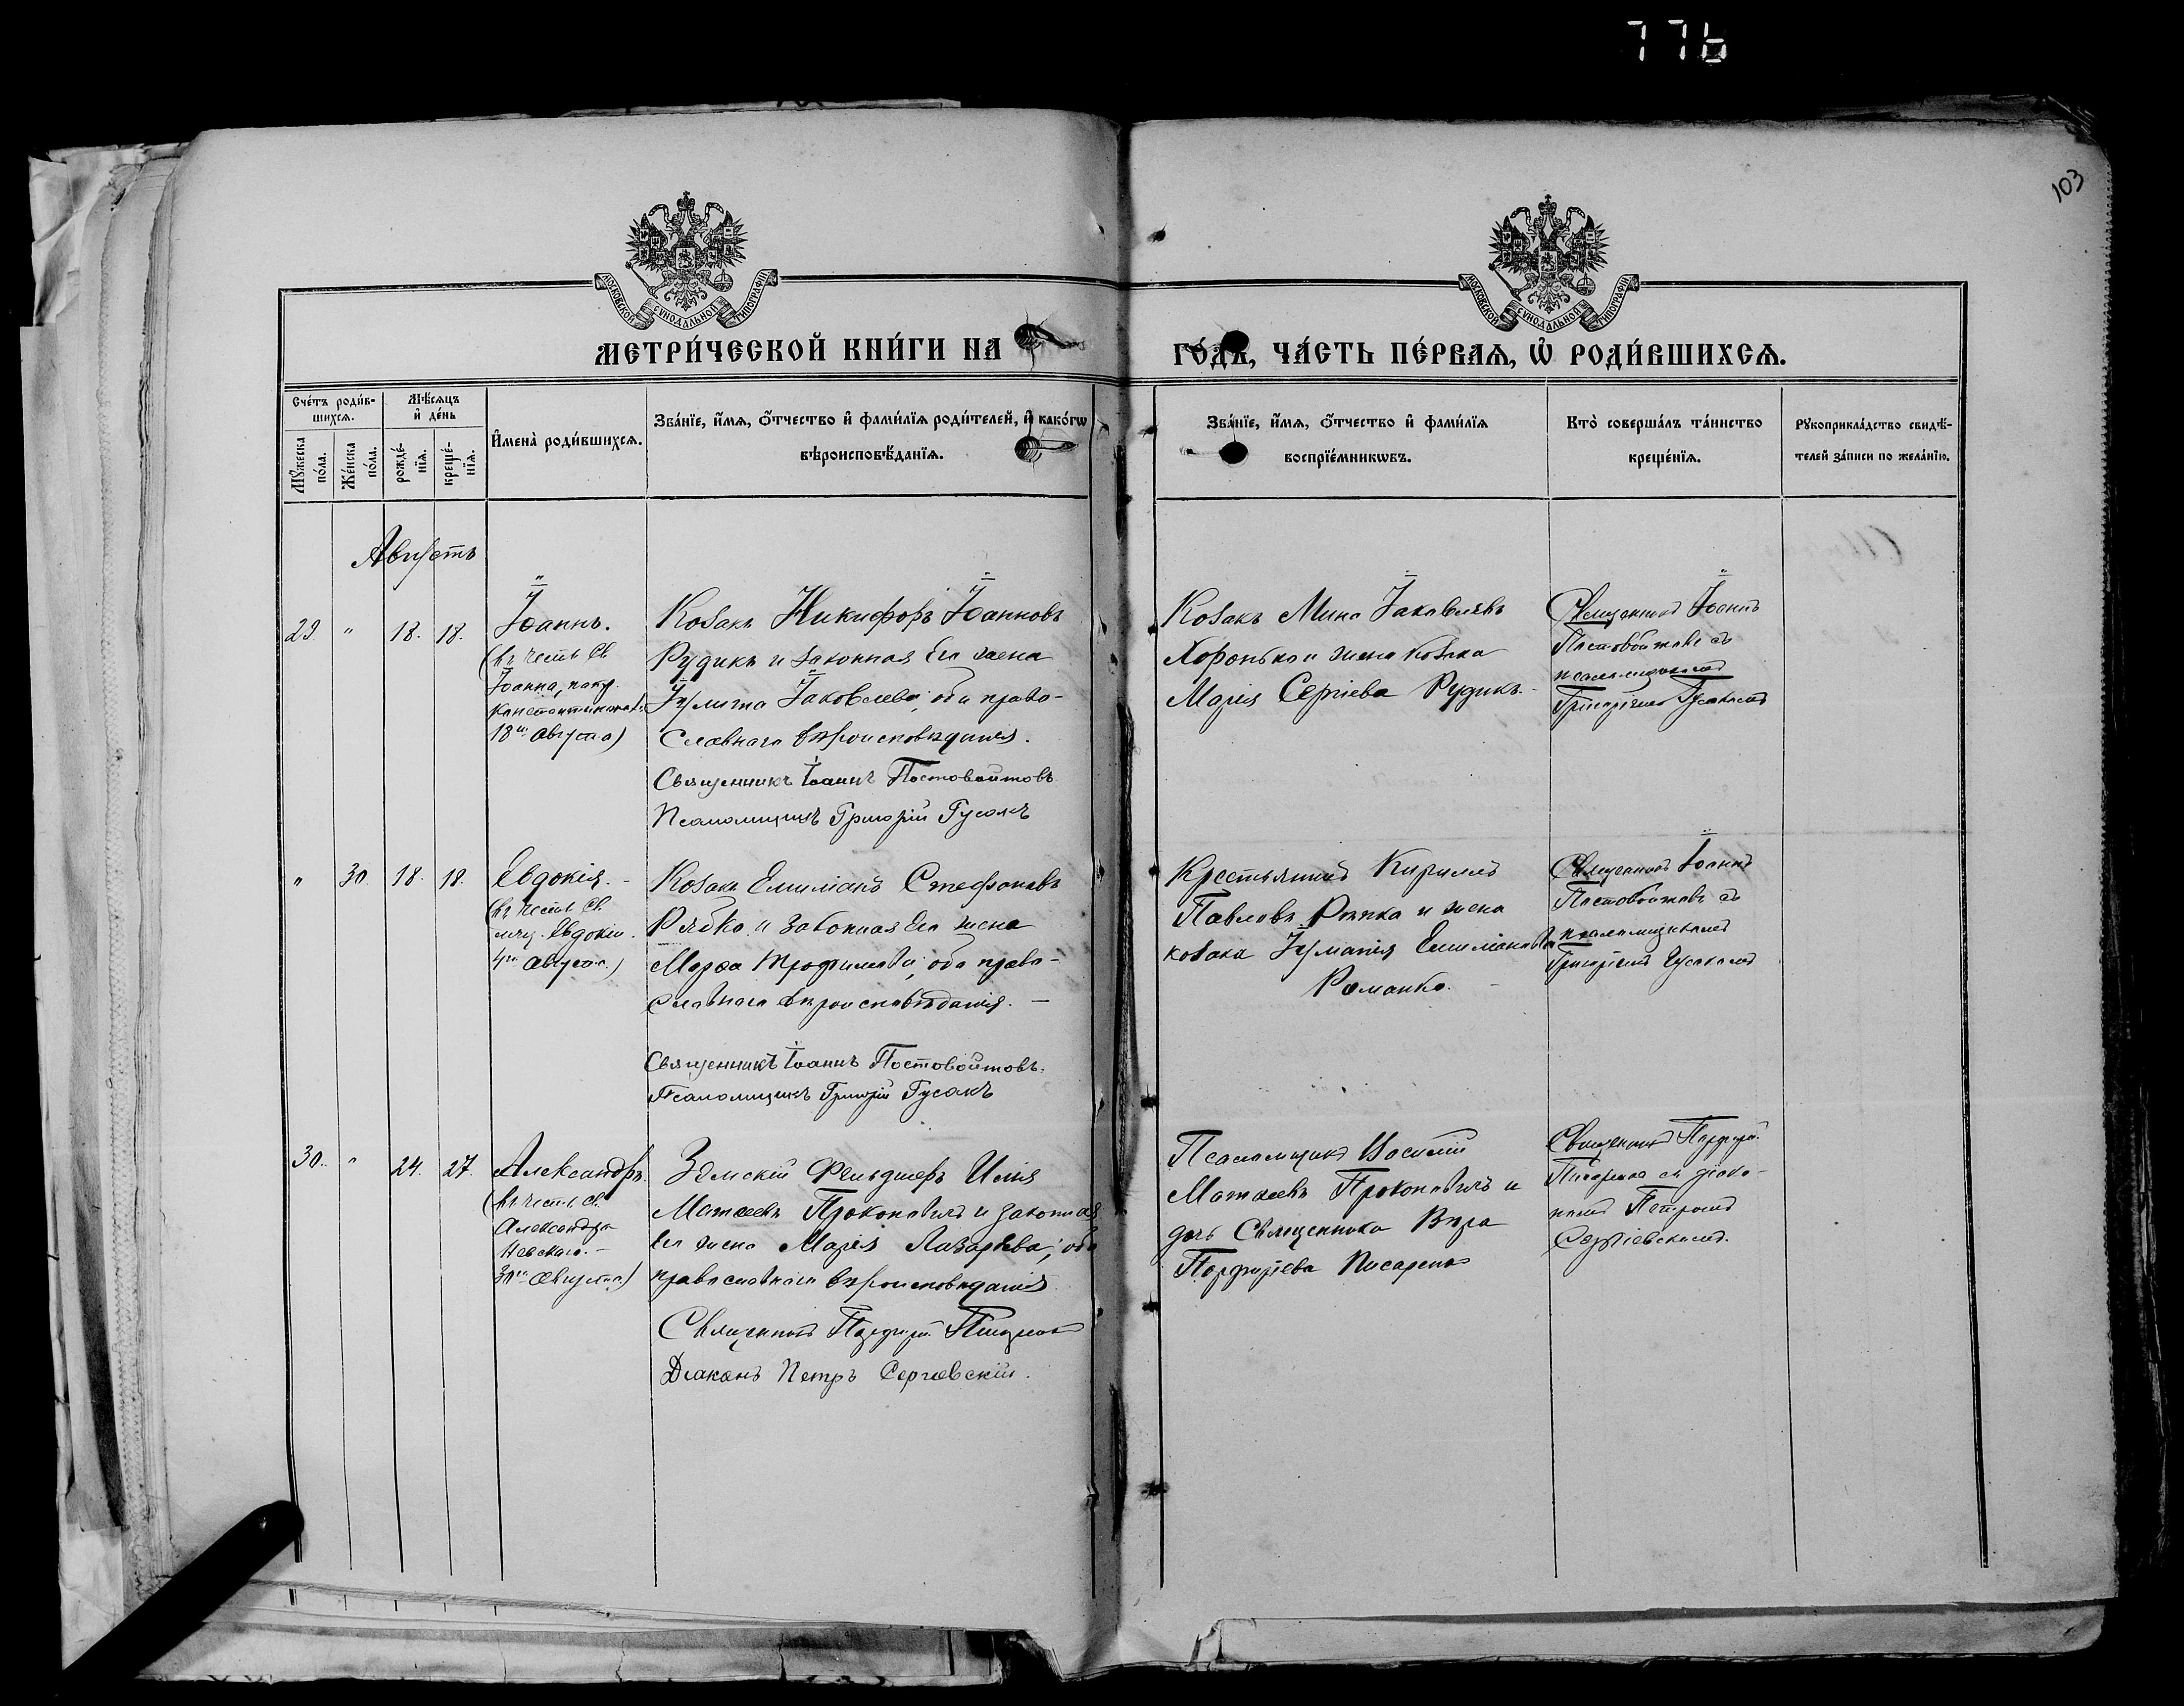 776
103
МОСКОВСКОЙ СѴНОДАЛЬНОЙ ТИПОГРАФІИ
МОСКОВСКОЙ СѴНОДАЛЬНОЙ ТИПОГРАФІИ
МЕТРИ́ЧЕСКОЙ КНИ́ГИ НА ГО́ДЪ, ЧА́СТЬ ПЕ́РВАѦ, Ѡ҆ РОДИ́ВШИХСѦ.
Сче́тъ роди́в-
шихсѧ.
Мꙋ́жеска по́ла.
Же́нска по́ла.
Мѣ́сѧцъ и҆ де́нь
рожде́-
нїѧ.
креще́-
нїѧ.
И҆мена̀ роди́вшихсѧ.
Зва́нїе, и҆́мѧ, ѻ҆́тчество и҆ фами́лїѧ роди́телей, и҆ како́гѡ
вѣроисповѣ́данїѧ.
Зва́нїе, и҆́мѧ, ѻ҆́тчество и҆ фами́лїѧ
воспрїе́мникѡвъ.
Кто̀ соверша́лъ та́инство
креще́нїѧ.
Рꙋкоприкла́дство свидѣ́-
телей за́писи по жела́нїю.
Августъ
29. " 18. 18.
Іоаннъ.
(въ честь Св.
Іоанна, патр.
Константинопол.
18го Августа)
Козакъ Никифоръ Іоанновъ
Рудикъ и законная его жена
Іулита Іаковлева; оба право-
славнаго вѣроисповѣданія.
Священникъ Іоаннъ Постовойтовъ
Псаломщикъ Григорій Гусакъ
Козакъ Мина Іаковлевъ
Хоронько и жена козака
Марія Сергіева Рудикъ.
Священникъ Іоаннъ
Постовойтовъ съ
псаломщикомъ
Григоріемъ Гусакомъ
" 30. 18. 18.
Евдокія.
(въ честь Св.
муч. Евдокіи.
4го Августа.)
Козакъ Емиліанъ Стефановъ
Рябко и законная его жена
Марѳа Трофимова; оба право-
славнаго вѣроисповѣданія.
Священникъ Іоаннъ Постовойтовъ.
Псаломщикъ Григорій Гусакъ
Крестьянинъ Кириллъ
Павловъ Рѣпка и жена
козака Іуліанія Емиліанова
Романко.
Священникъ Іоаннъ
Постовойтовъ съ
псаломщикомъ
Григоріемъ Гусакомъ
30. " 24. 27.
Александръ.
(въ честь Св.
Александра
Невскаго.
30го Августа)
Земскій Фельдшеръ Илія
Матѳеевъ Прокоповичъ и законная
его жена Марія Лазарева; оба
православнаго вѣроисповѣданія
Священникъ Порфирій Писаренко
Діаконъ Петръ Сергіевскій.
Псаломщикъ Василій
Матѳеевъ Прокоповичъ и
дочь Священника Вѣра
Порфиріева Писаренко
Священникъ Порфирій
Писаренко съ діако-
номъ Петромъ
Сергіевскимъ.